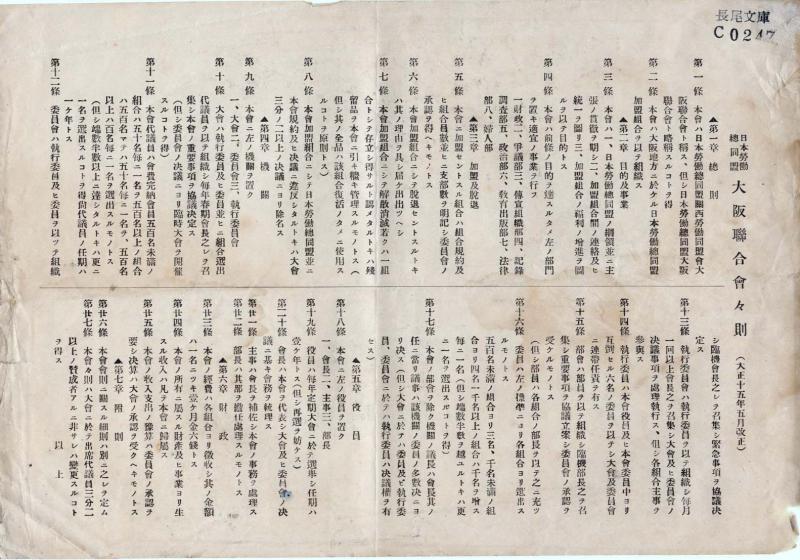 長尾文庫
C0247
日本労働
総同盟
大阪聯合會々則
（大正十五年五月改正）
▲第一章 總則
第一條 本會ハ日本勞働總同盟關西勞働同盟會大
阪聯合會ト稱ス、但シ日本勞働總同盟大阪
聯合會ト略稱スルコトヲ得
第二條 本會ハ大阪地方ニ於ケル日本勞働總同盟
加盟組合ヲ以テ組織ス
▲第二章 目的及事業
第三條 本會ハ一、日本勞働總同盟ノ綱領並ニ主
張ノ貫徹ヲ期シ二、加盟組合間ノ連絡及ヒ
統一ヲ圖リ三、加盟組合ノ福利ノ增進ヲ圖
ルヲ以テ目的トス
第四條 本會ハ前條ノ目的ヲ達スルタメ左ノ部門
ヲ置キ適宜ノ事業ヲ行フ
一財政二、爭議部三、傳宣組織部四、記錄
調査部五、政治部六、敎育出版部七、法律
部八、婦人部
▲第三章 加盟及脫退
第五條 本會ニ加盟セントスル組合ハ組合規約及
ヒ組合員數並ニ支部數ヲ明記シ委員會ノ
承認ヲ得ヘキモノトス
第六條 本會加盟組合ニシテ脫退セントスルトキ
ハ其ノ理由ヲ具シ屆ケ出ツヘシ
第七條 本會加盟組合ニシテ解散消滅若クハ一組
合トシテ存立シ得サルト認メタルトキハ殘
留品ヲ本會ニ引キ繼キ管理スルモノトス（
但シ其ノ全品ハ該組合復活ノタメニ使用ス
ルコトヲ原則トス）
第八條 本會加盟組合ニシテ日本勞働總同盟並ニ
本會規約及ヒ決議ニ違反シタルトキハ大會
三分ノ二以上ノ決議ニヨリ除名ス
▲第四章 機關
第九條 本會ニ左ノ機關ヲ置ク
一、大會二、委員會三、執行委員會
第十條 大會ハ執行委員及ヒ委員並ヒニ組合選出
代議員ヲ以テ組織シ每年春期會長之レヲ召
集シ本會ノ重要事項ヲ協議決定ス
（但シ委員會ノ決議ニヨリ臨時大會ヲ開催
スルコトヲ得）
第十一條 本會代議員ハ會費完納會員五百名未滿ノ
組合ハ五十名每ニ一名ヲ五百名以上ノ組合
ハ五百名マテハ五十名每ニ一名ヲ、五百名
以上ハ百名每ニ一名ヲ選出スルモノトス
（但シ端數半數以上ニ達シタルトキハ更ニ
一名ヲ選出スルコトヲ得但代議員ノ任期ハ
一ケ年トス）
第十二條 委員會ハ執行委員及ヒ委員ヲ以ツテ組織
シ臨機會長之レヲ召集シ緊急事項ヲ協議決
定ス
第十三條 執行委員會ハ執行委員ヲ以テ組織シ每月
一回以上會長之ヲ召集シ大會及ヒ委員會ノ
決議事項ヲ處理執行ス、但シ各組合主事ヲ
參與ス
第十四條 執行委員ハ本會役員及ヒ本會委員中ヨリ
互選ヒル六名ノ委員ヲ以テシ大會及委員會
ニ連帶任責ヲ有ス
第十五條 部會ハ部員ヲ以テ組織シ臨機部長之ヲ召
集シ重要事項ヲ協議立案シ委員會ノ承認ヲ
受クルモノトス
（但シ部員ハ各組合ノ部長ヲ以テ之ニ充ツ
第十六條 委員ハ左ノ標準ニヨリ各組合ヨリ選出ス
ルモノトス
五百名未滿ノ組合ヨリ三名、千名未滿ノ組
合ヨリ四名千名以上ノ組合ハ千名ヲ增ス
每ニ一名（但シ端數半數ヲ越エルトキハ更
ニ一名ヲ選出スルコトヲ得）
第十七條 本會ノ部會ヲ除ク機關ノ議長ハ會長其ノ
任ニ當リ議事ハ該機關ノ委員ノ多數決ニヨ
リ決ス（但シ大會ニ於テハ委員及ヒ執行委
員、委員會ニ於テハ執行委員ハ決議權ヲ有
セス）
▲第五章 役員
第十八條 本會ニ左ノ役員ヲ置ク
一、會長二、主事三、部長
第十九條 役員ハ每年定期大會ニ於テ選擧シ任期ハ
壹ケ年トス（但シ再選ヲ妨ケス）
第二十條 會長ハ本會ヲ代表シ大會及ヒ委員會ノ決
議ニ基キ會務ヲ統理ス
第廿一條 主事ハ會長ヲ補佐シ本會ノ事務ヲ處理ス
第廿二條 部長ハ其部ヲ擔任處理スルモノトス
▲第六章 財政
第廿三條 本會ノ經費ハ各組合ヨリ徵收シ其ノ金額
ハ一名ニツキ壹ケ月金六錢トス
第廿四條 本會ノ所有ニ屬スル財產及ヒ事業ヨリ生
スル收入ハ凡テ本會ニ歸屬ス
第廿五條 本會ノ收入支出ノ豫算ハ委員會ノ承認ヲ
要シ決算ハ大會ノ承認ヲ受クヘキモノトス
▲第七章 附則
第廿六條 本會會則ニ關スル細則ハ別ニ之レヲ定ム
第廿七條 本會々則ハ大會ニ於テ出席代議員三分ノ二
以上ノ贊成者アルニ非サレハ變更スルコト
ヲ得ス
以上